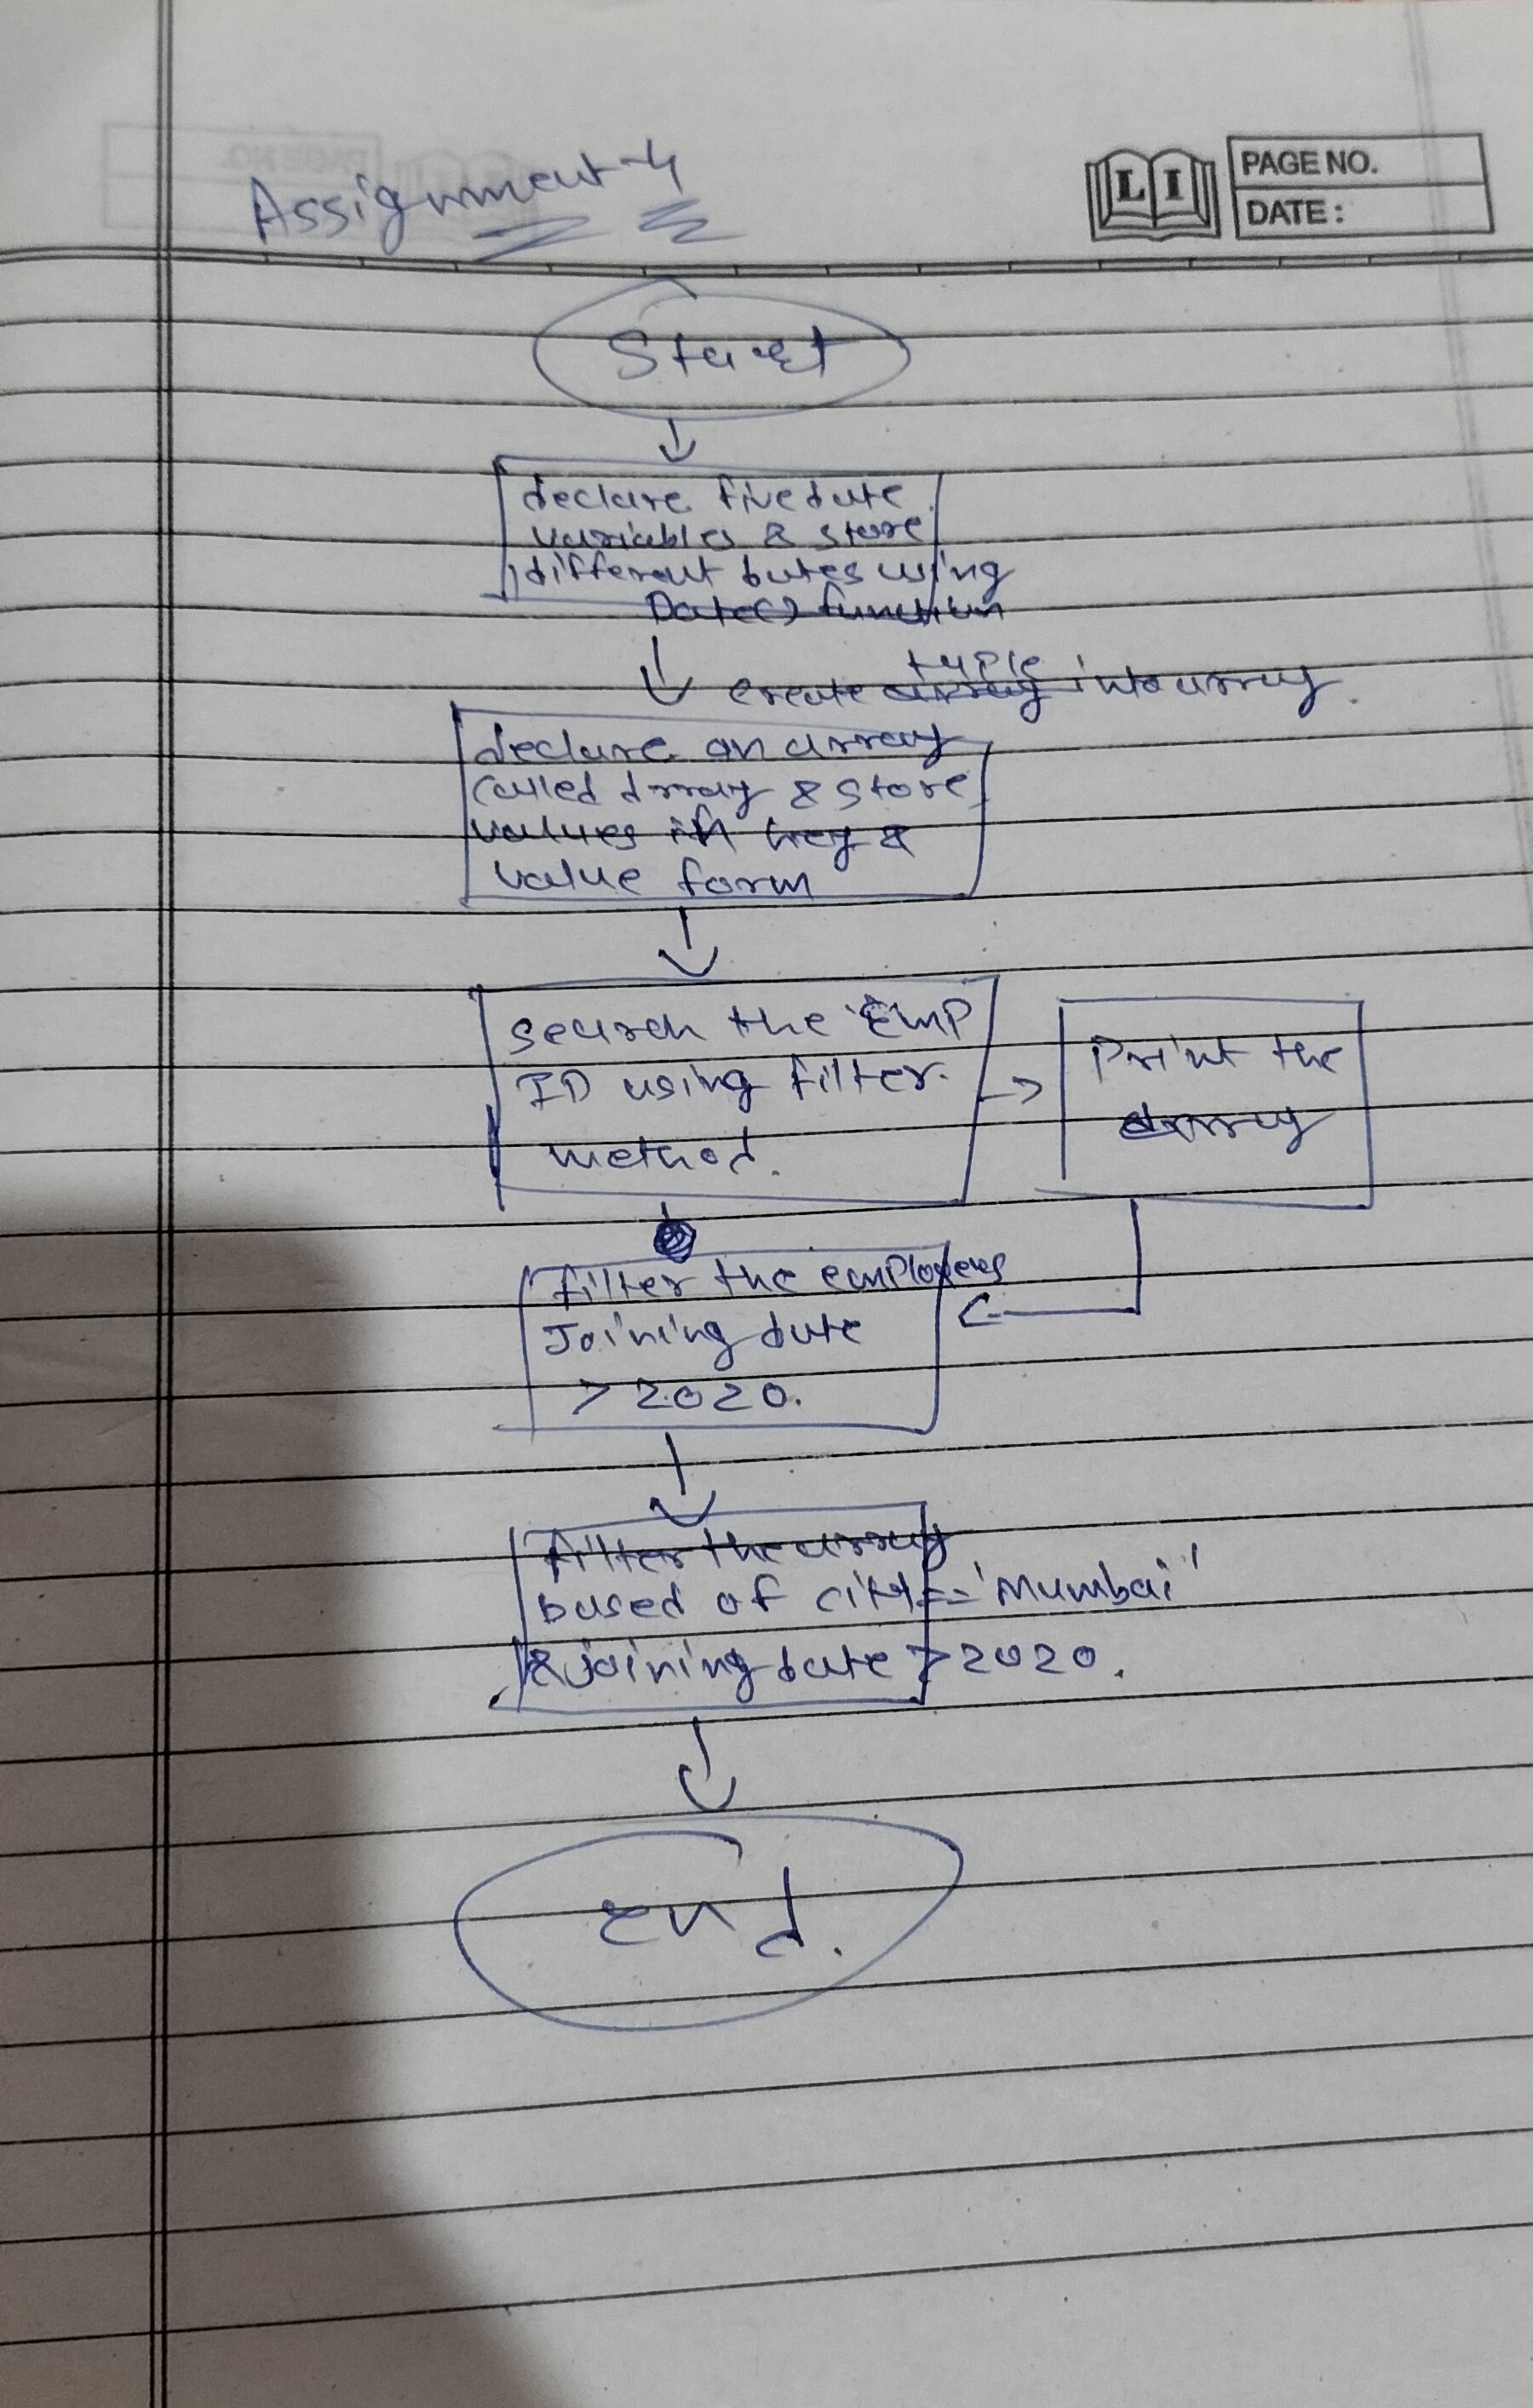 Assignment-4
LI
PAGE NO.
DATE :
Start
declare five date
variables & store
different dates using
Date() function
tuple
create into array.
declare an array
called array & store
values in key &
value form
search the Emp
ID using filter.
method.
Print the
array
filter the employees
Joining date
> 2020.
filter the array
based of city == 'Mumbai'
& joining date > 2020.
End.